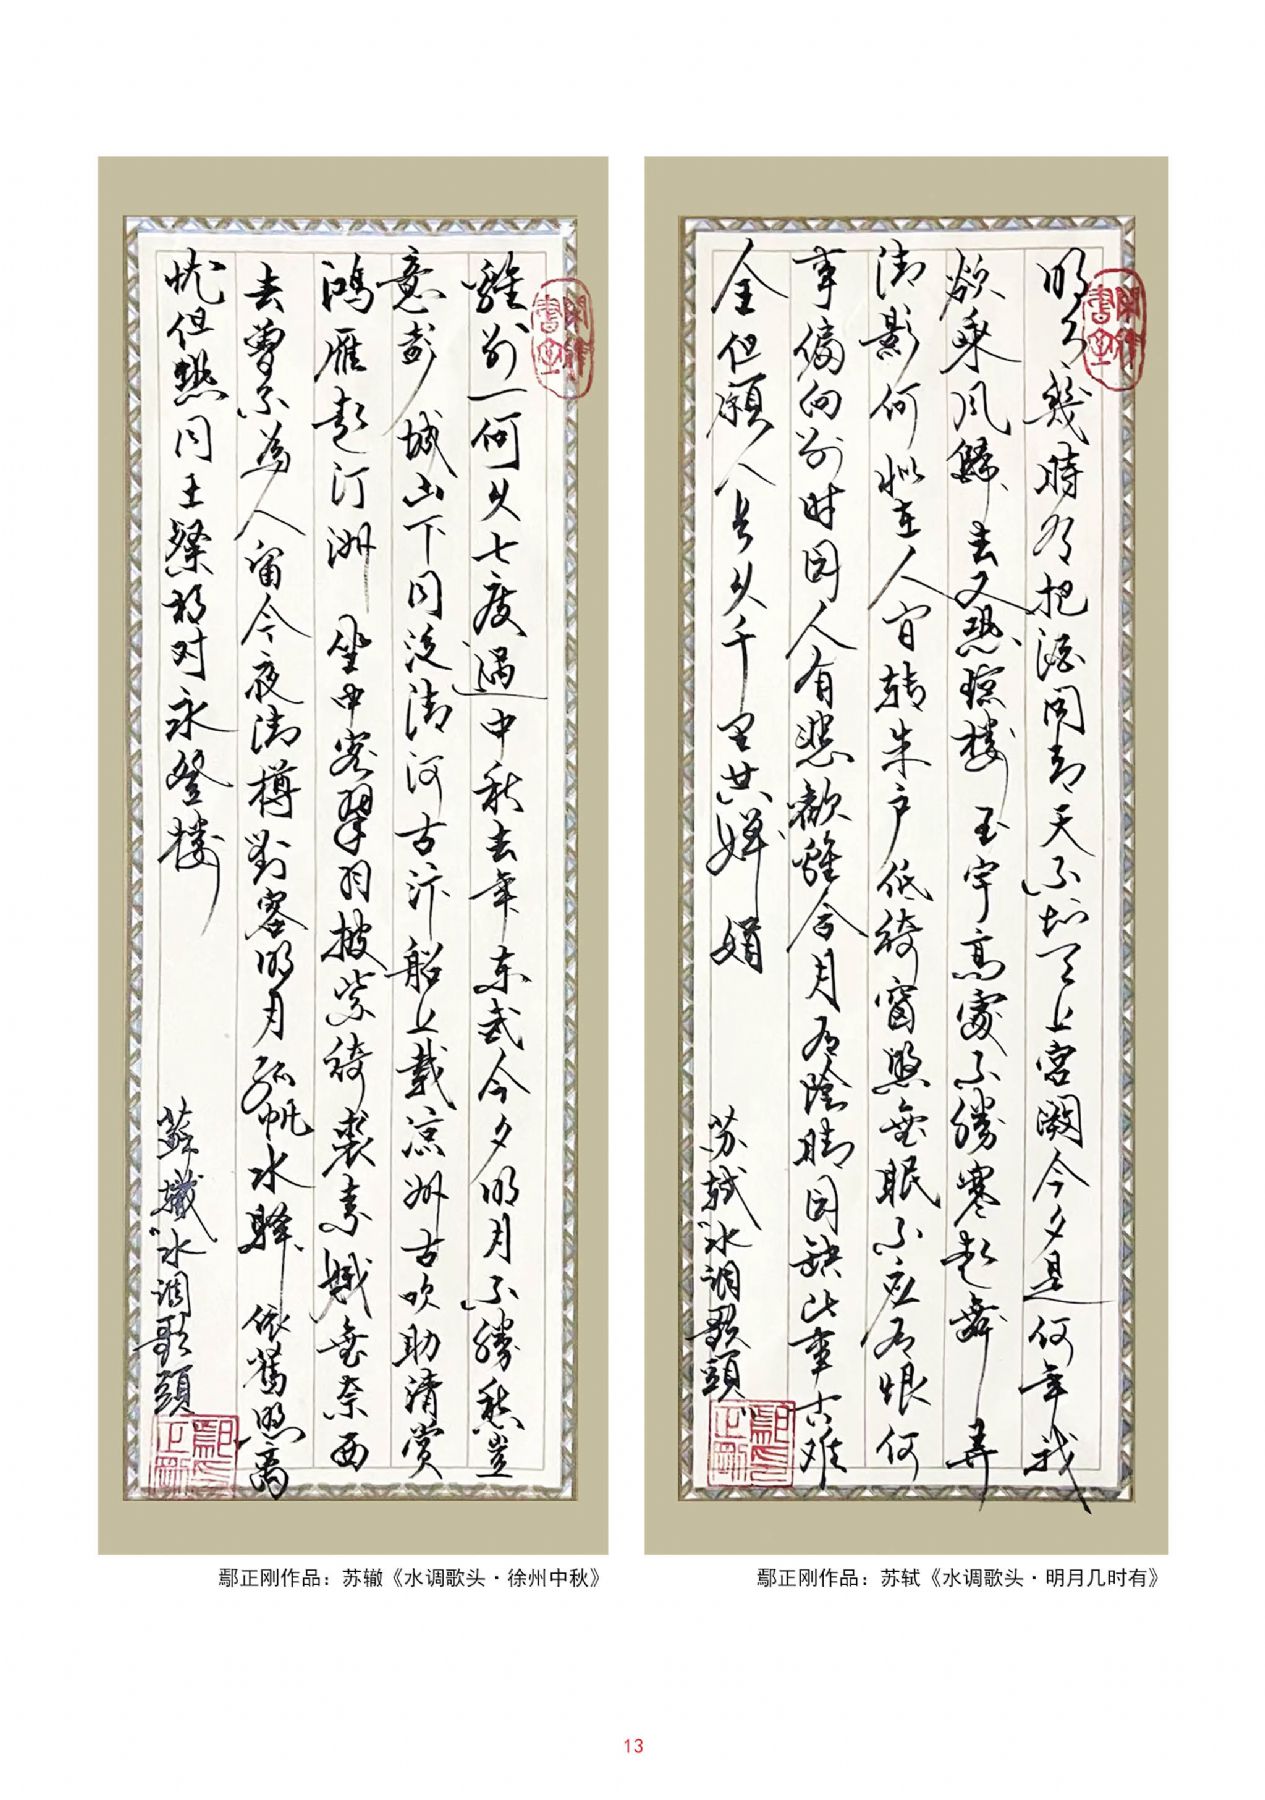 明月幾時有把酒問青天不知天上宫闕今夕是何年我
欲乘风歸去又恐瓊楼玉宇高處不勝寒起舞弄
清影何似在人间转朱户低绮窗照無眠不应有恨何
事偏向别时圆人有悲歡離合月有陰晴圆缺此事古难
全但願人長久千里共嬋娟
苏轼水调歌頭
鄢正刚印
鄢正刚作品：苏轼《水调歌头·明月几时有》
離别一何久七度過中秋去年东武今夕明月不勝愁豈
意彭城山下同泛清河古汴船上載凉州古吹助清赏
鸿雁起汀洲坐中客翠羽披紫绮裘素娥無奈西
去曾不為人留今夜清樽對客明月孤帆水驛依舊照离
忧但恐同王粲相对永登楼
蘇轍水调歌頭
鄢正刚印
鄢正刚作品：苏辙《水调歌头·徐州中秋》
13